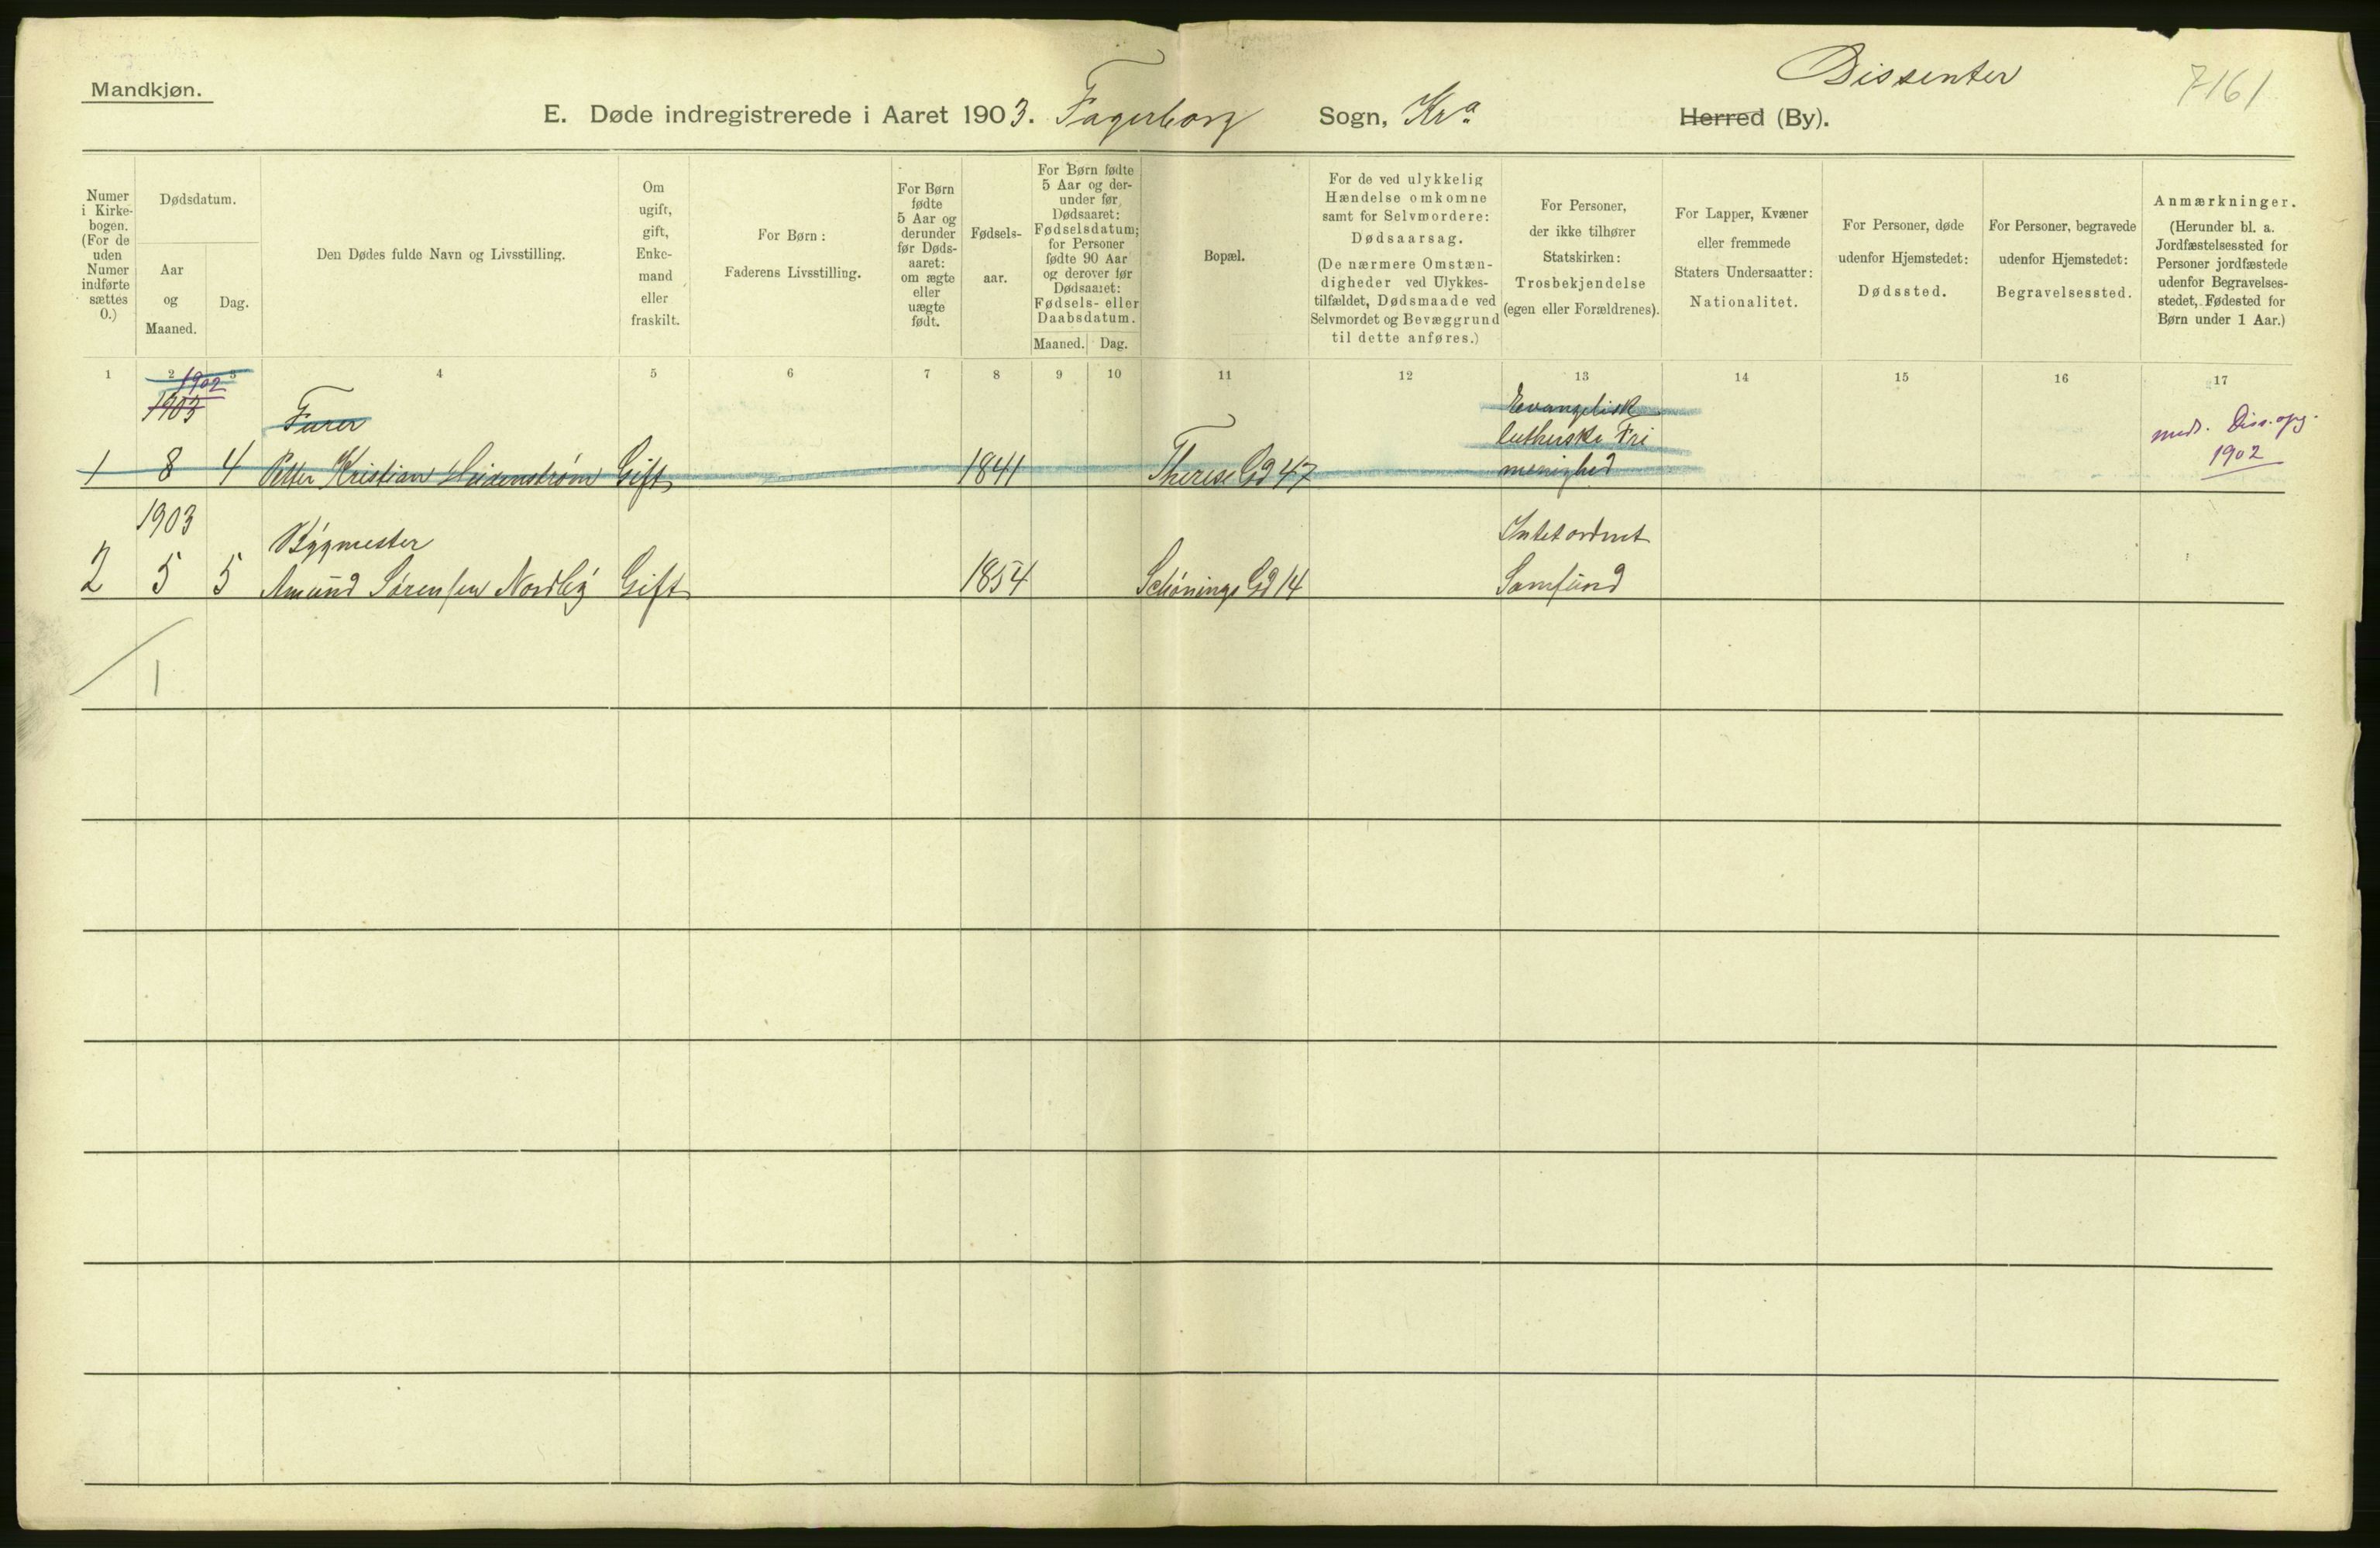 Mandkjøn.
Dissenter
7161
E. Døde indregistrerede i Aaret 1903. Fagerborg Sogn, Kra Herred (By).
Numer i Kirkebogen. (For de uden Numer indførte sættes 0.)
Dødsdatum.
Aar og Maaned.
Dag.
Den Dødes fulde Navn og Livsstilling.
Om ugift, gift, Enkemand eller fraskilt.
For Børn: Faderens Livsstilling.
For Børn fødte 5 Aar og derunder før Dødsaaret: om ægte eller uægte født.
Fødselsaar.
For Børn fødte 5 Aar og derunder før Dødsaaret: Fødselsdatum; for Personer fødte 90 Aar og derover før Dødsaaret: Fødsels- eller Daabsdatum.
Maaned. Dag.
Bopæl.
For de ved ulykkelig Hændelse omkomne samt for Selvmordere: Dødsaarsag. (De nærmere Omstændigheder ved Ulykkestilfældet, Dødsmaade ved Selvmordet og Bevæggrund til dette anføres.)
For Personer, der ikke tilhører Statskirken: Trosbekjendelse (egen eller Forældrenes).
For Lapper, Kvæner eller fremmede Staters Undersaatter: Nationalitet.
For Personer, døde udenfor Hjemstedet: Dødssted.
For Personer, begravede udenfor Hjemstedet: Begravelsessted.
Anmærkninger. (Herunder bl. a. Jordfæstelsessted for Personer jordfæstede udenfor Begravelsesstedet, Fødested for Børn under 1 Aar.)
1 2 3 4 5 6 7 8 9 10 11 12 13 14 15 16 17
1902
1903 Evangelisk
Furer lutherske Fri
1 8 4 Petter Kristian Gift 1841 Therese Gd 47 menighed
medt. Diss. opg.
1902
1903 Intet ordnet
Bygmester
2 5 5 Amund Sørensen Nordby Gift 1854 Schønings Gd 14 Samfund
1